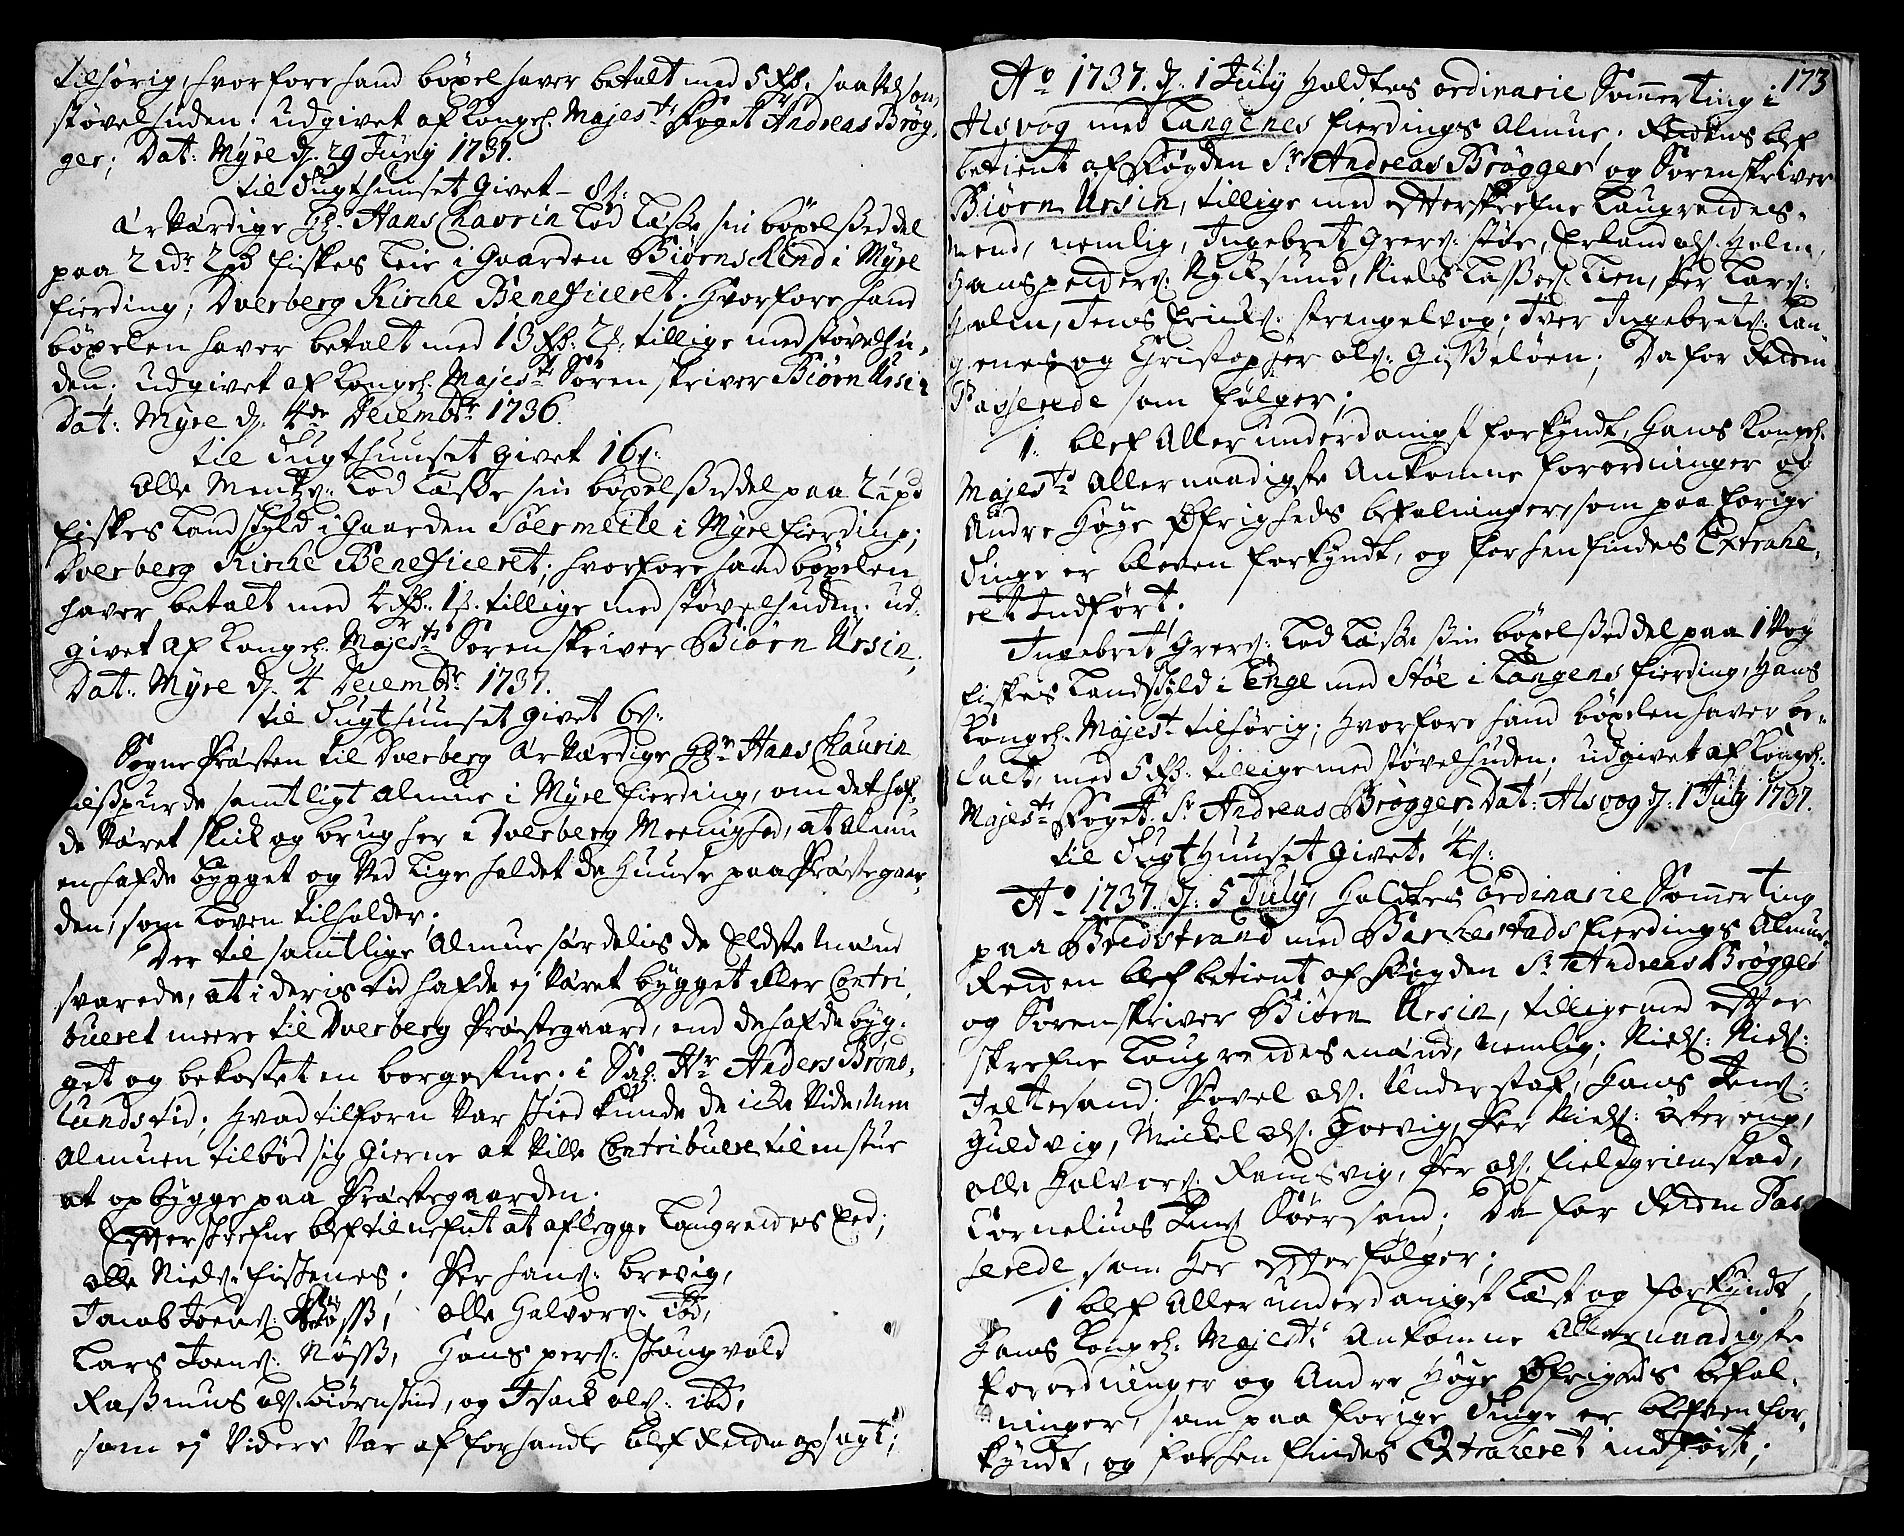 tilhörig, hvorfore hand böxel haver betalt med 5 Rd: saavelsom
støvelhuden; udgivet af Kongel. Majest:s Foget Sr Andreas Brög,
ger; Dat: Myre d. 29 Juny 1737.
til Tugthuuset givet - 8 s:
Ærværdige Hr. Hans Chavrin Lod Læsse sin böxelsseddel
paa 2 pd fiskes Leie i Gaarden Biörnskind i Myre
fierding; Dverberg Kirche Beneficeret; hvorfore hand
böxelen haver betalt med 13 Rd. 2 s: tillige med støvelhu,
den; udgivet af Kongel. Majest:s Sören skriver Biörn Ursin
Dat: Myre d. 4de Decembr: 1736.
til Tugthuuset givet 16 s:
Olle Mentzs: Lod Læsse sin böxelssedel paa 2½ pd
fiskes Landskyld i Gaarden Söermeile i Myre fierding;
Dverberg Kirche Beneficeret; hvorfore hand böxelen
haver betalt med 4 Rd. 1 s. tillige med støvelhuden. ud,
givet af Kongel. Majest:s Sorenskriver Biörn Ursin,
Dat: Myre d. 4 Decembr: 1737.
til Tugthuuset givet 6 s:
Sogne Præsten til Dverberg Ærværdige Hr Hans Chaurin
tilsspurde samtligt Almue i Myre fierding, om det haf,
de Været skick og brug her i Dverberg Meenighed, at Almu
en hafde bygget og Ved Lige holdet de Huuse paa Præstegaar,
den, som Loven tilholder;
Der til samtlige Almue særdelis de Eldste Mænd
svarede, at i deris tid hafde ej været bygget eller Contri,
bueret meere til Dverberg Præstegaard, end de hafde byg,
get og bekostet en borgestue, i Sal. Hr Anders Bröns,
lunds tid; hvad tilforn Var skied kunde de icke Vide, Men
Almuen tilbød sig gierne at Ville Contribuere til en stue
at opbygge paa Præstegaarden.
Efterskrefne blef tilnefnt at aflegge Laugrettes Eed;
Olle Niels: fiskenes; Per Hans: brevig,
Jacob Joens: Nösss, Olle Halvors: ibd,
Lars Joens: Nösss, Hans pers: skougvold
Rassmus ols: Biörnskind, og Isack ols: ibd;
som ej Videre Var afforhandle blef Retten opsagt;
173
Ao 1737. d. 1 July holdtes ordinarie Sommerting i
Alsvog med Langenes fierdings Almue; Retten blef
betient af Fogden Sr Andreas Brögger og Sorenskriver
Biörn Ursin, tillige med Efterskrefne Laugrettes,
Mend, nemlig, Ingebret Grers: støe, Erland ols: Holm,
Hans peiters: Nyksund, Niels Lasses: Tien, Per Lars:
Holm, Jens Ericks: strengelvog, Iver Ingebrets: Lan
genes og Christopher ols: Gisseløen; Da for Retten
Passerede som følger;
1. blef Allerunderdanigst forkyndt, Hans Kongel.
Majest:s Allernaadigste Ankomne forordninger og
Andre Høye Øfrigheds befalninger, som paa forige
Tinge er bleven forkyndt, og forhen findes Extrahe,
ret Indført;
Ingebret Grers: Lod Læsse sin böxelsseddel paa 1 Vog
fiskes Landskyld i Enge med Støe i Langenes fierding, Hans
Kongel. Majest: tilhörig; hvorfore hand böxelen haver be,
talt, med 5 Rd: tillige med støvelhuden; udgivet af Kongel.
Majest:s Foget Sr Andreas Brögger, Dat: Alsvog d: 1 July 1737.
til Tugthuuset givet, 4 s:
Ao 1737. d. 5 July, Holdtes ordinarie Sommerting
paa Bredstrand med Barchestads fierdings Almue,
Retten blef betient af Fogden Sr Andreas Brögger
og Sorenskriver Biörn Ursin, tillige med Efter
skrefne Laugrettesmænd, nemlig; Niels: Niels:
Jeltesand; Povel ols: Understaf, Hans Jens:
Guldvig, Mickel ols: Hoevig, Per Niels: østereng,
Olle Halvors: Ramsvig, Per ols: fieldgrienstad,
Cornelius Jens Söersand; Da for Retten Pas
serede som her efterfølger;
1 blef Allerunderdanigst Læst og forkyndt,
Hans Kongel. Majest:s Ankomne Allernaadigste
forordninger og Andre Høye Øfrigheds befal,
ninger, som paa forige Tinge er blefven for,
kyndt, og forhen findes Extraheret indført;